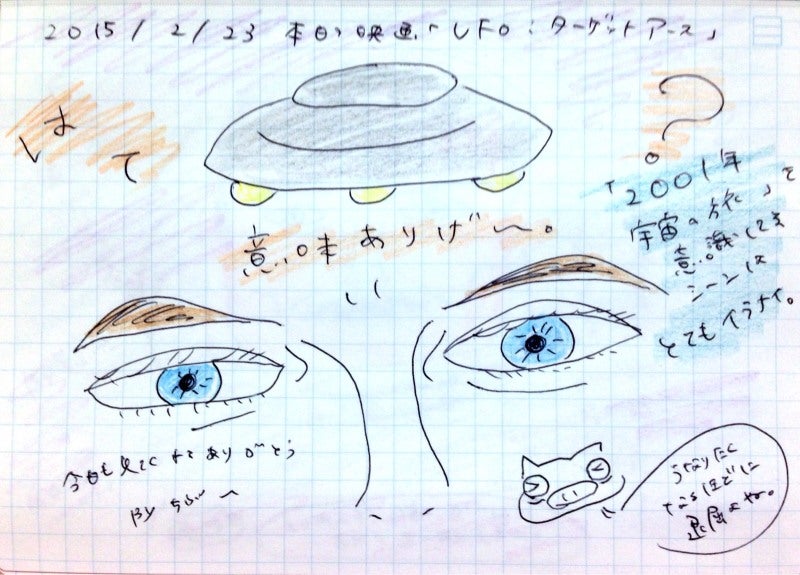 2015/2/23 本日の映画「UFO:ターゲットアース」
はて
?
意味ありげ〜。
「2001年
宇宙の旅」を
意識してる
シーンは
とてもイラナイ。
今日も見てくれてありがとう
BY ちぷ〜
ほどに
退屈よな。